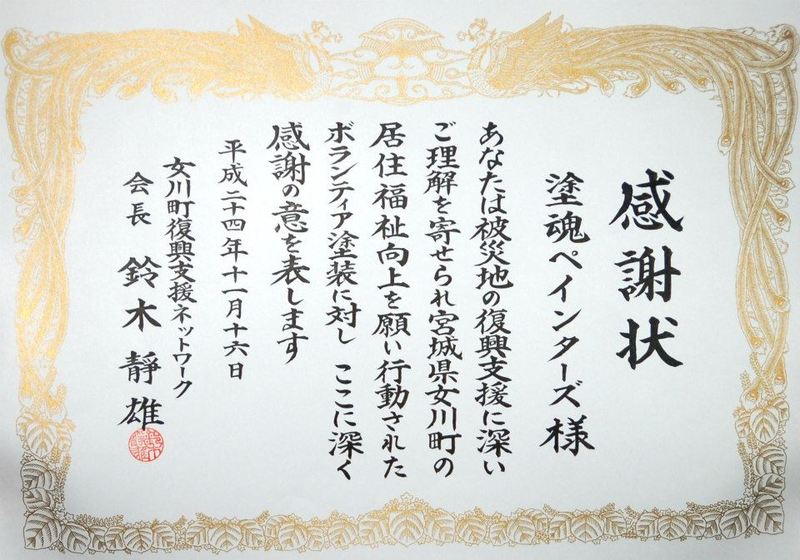 感謝状
塗魂ペインターズ様
あなたは被災地の復興支援に深い
ご理解を寄せられ宮城県女川町の
居住福祉向上を願い行動された
ボランティア塗装に対し ここに深く
感謝の意を表します
平成二十四年十一月十六日
女川町復興支援ネットワーク
会長 鈴木靜雄